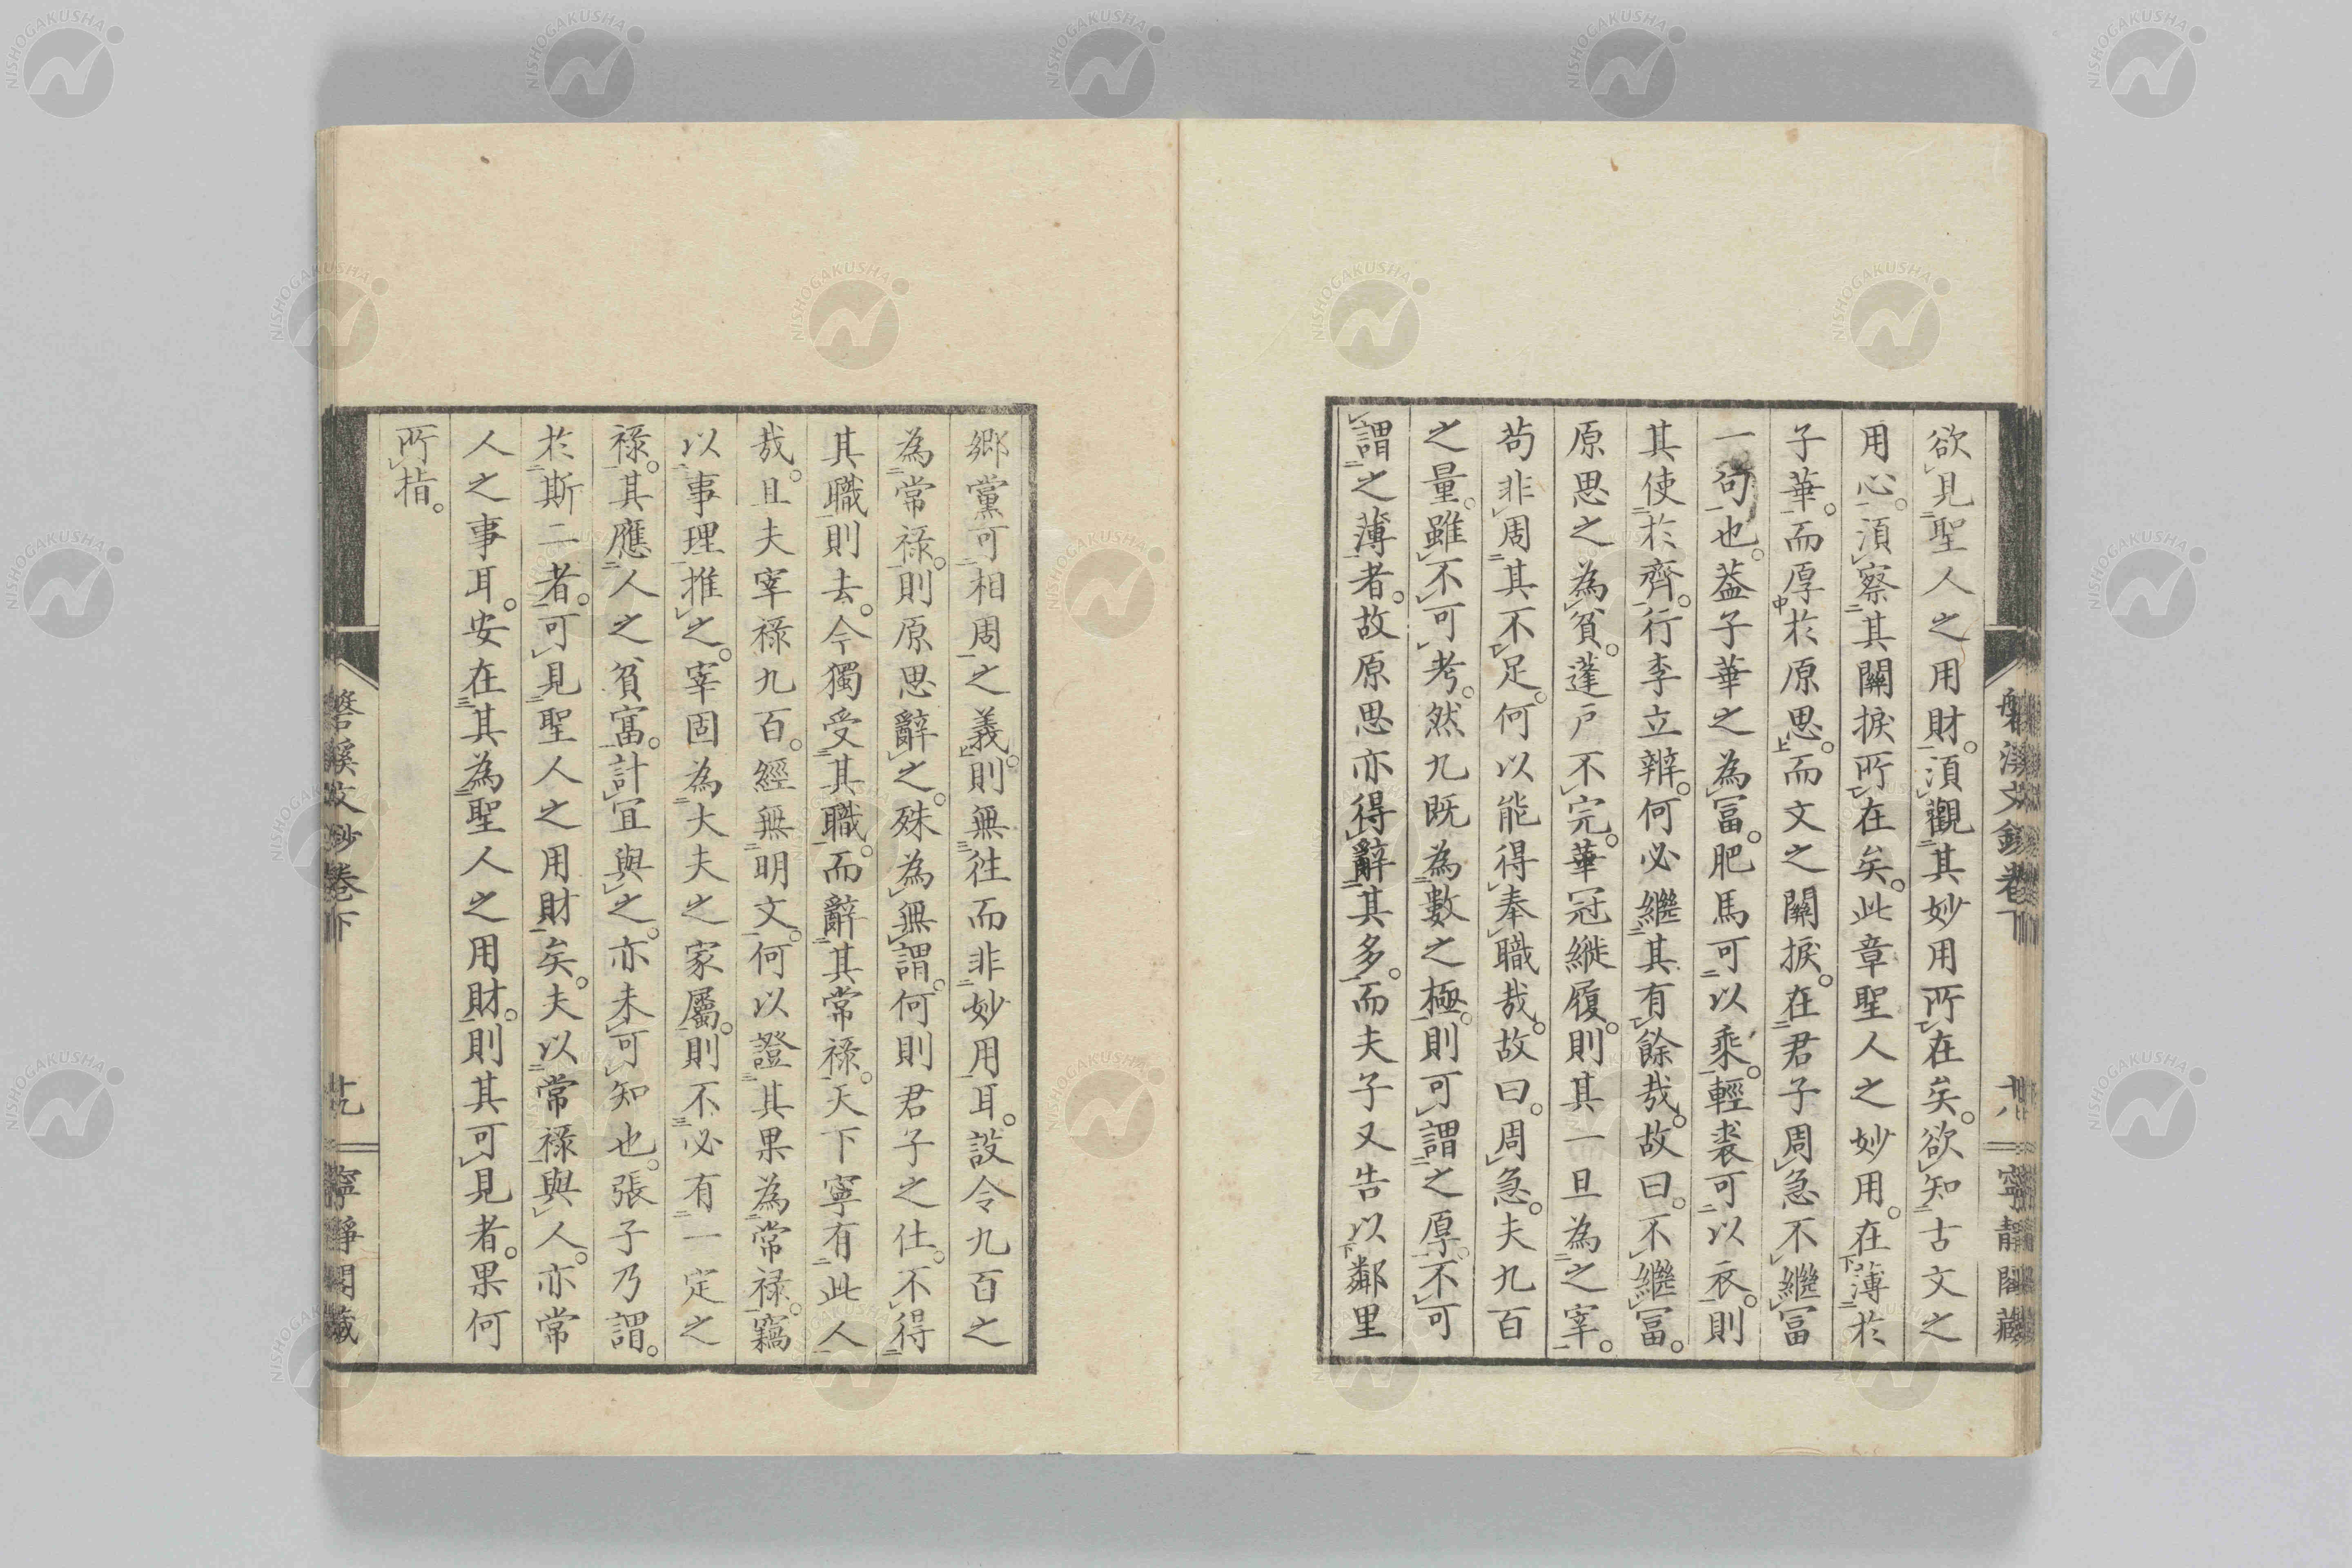 欲見聖人之用財。須觀其妙用所在矣。欲知古文之
用心。須察其關捩所在矣。此章聖人之妙用。在薄於
子華。而厚於原思。而文之關捩。在君子周急不繼冨
一句也。葢子華之為冨。肥馬可以乘。輕裘可以衣。則
其使於齊。行李立辨。何必繼其有餘哉。故曰。不繼冨。
原思之為貧。蓬戸不完。華冠縰履。則其一旦為之宰。
苟非周其不足。何以能得奉職哉。故曰。周急。夫九百
之量。雖不可考。然九既為數之極。則可謂之厚。不可
謂之薄者。故原思亦得辭其多。而夫子又告以鄰里
磐溪文鈔卷下 廿八 寧靜閣藏
鄉黨可相周之義。則無徃而非妙用耳。設令九百之
為常禄。則原思辭之。殊為無謂。何則君子之仕。不得
其職則去。今獨受其職。而辭其常禄。天下寧有此人
哉。且夫宰禄九百。經無明文。何以證其果為常禄。竊
以事理推之。宰固為大夫之家屬。則不必有一定之
禄。其應人之貧富。計宜與之。亦未可知也。張子乃謂。
於斯二者。可見聖人之用財矣。夫以常禄與人。亦常
人之事耳。安在其為聖人之用財。則其可見者。果何
所指。
磐溪文鈔卷下 廿九 寧靜閣藏
NISHOGAKUSHA